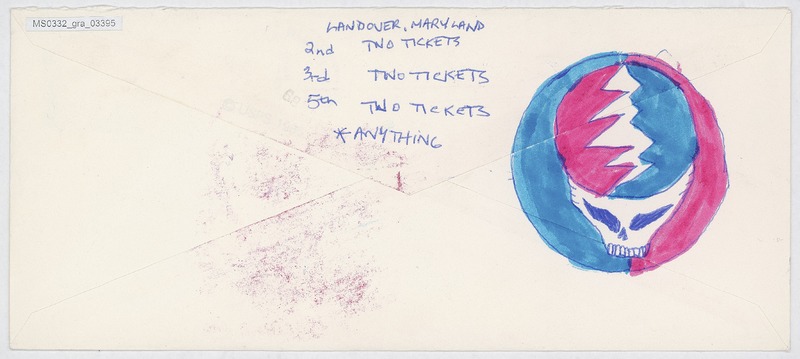 MS0332_gra_03395
LANDOVER, MARYLAND
2nd TWO TICKETS
3rd TWO TICKETS
5th TWO TICKETS
*ANYTHING